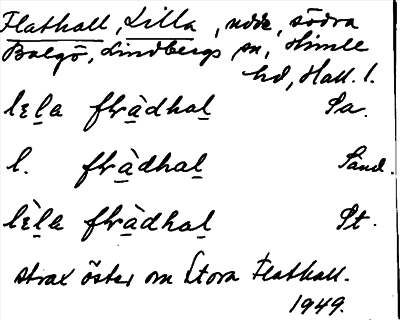 Flathall, Lilla, udde, södra
Balgö, Lindbergs sn, Himle
hd, Hall. l.
lɛla flràdhal Sa.
l. flràdhal Sand.
lɛ̀la flràdhal St.
strax öster om Stora Flathall.
1949.